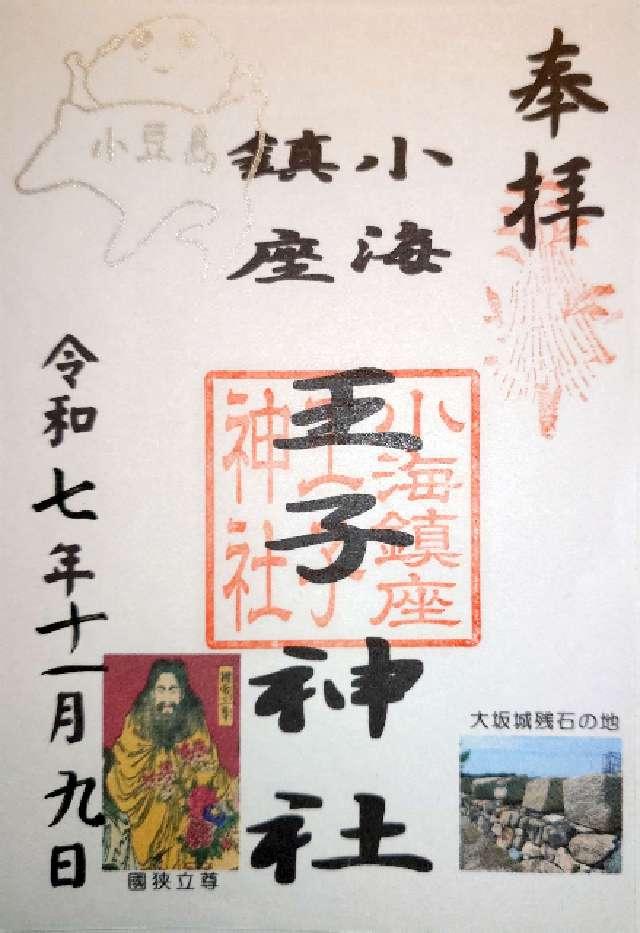 奉拝
小海
鎮座
小豆島
王子神社
小海鎮座
王子
神社
令和七年十一月九日
國狭立尊
大坂城残石の地